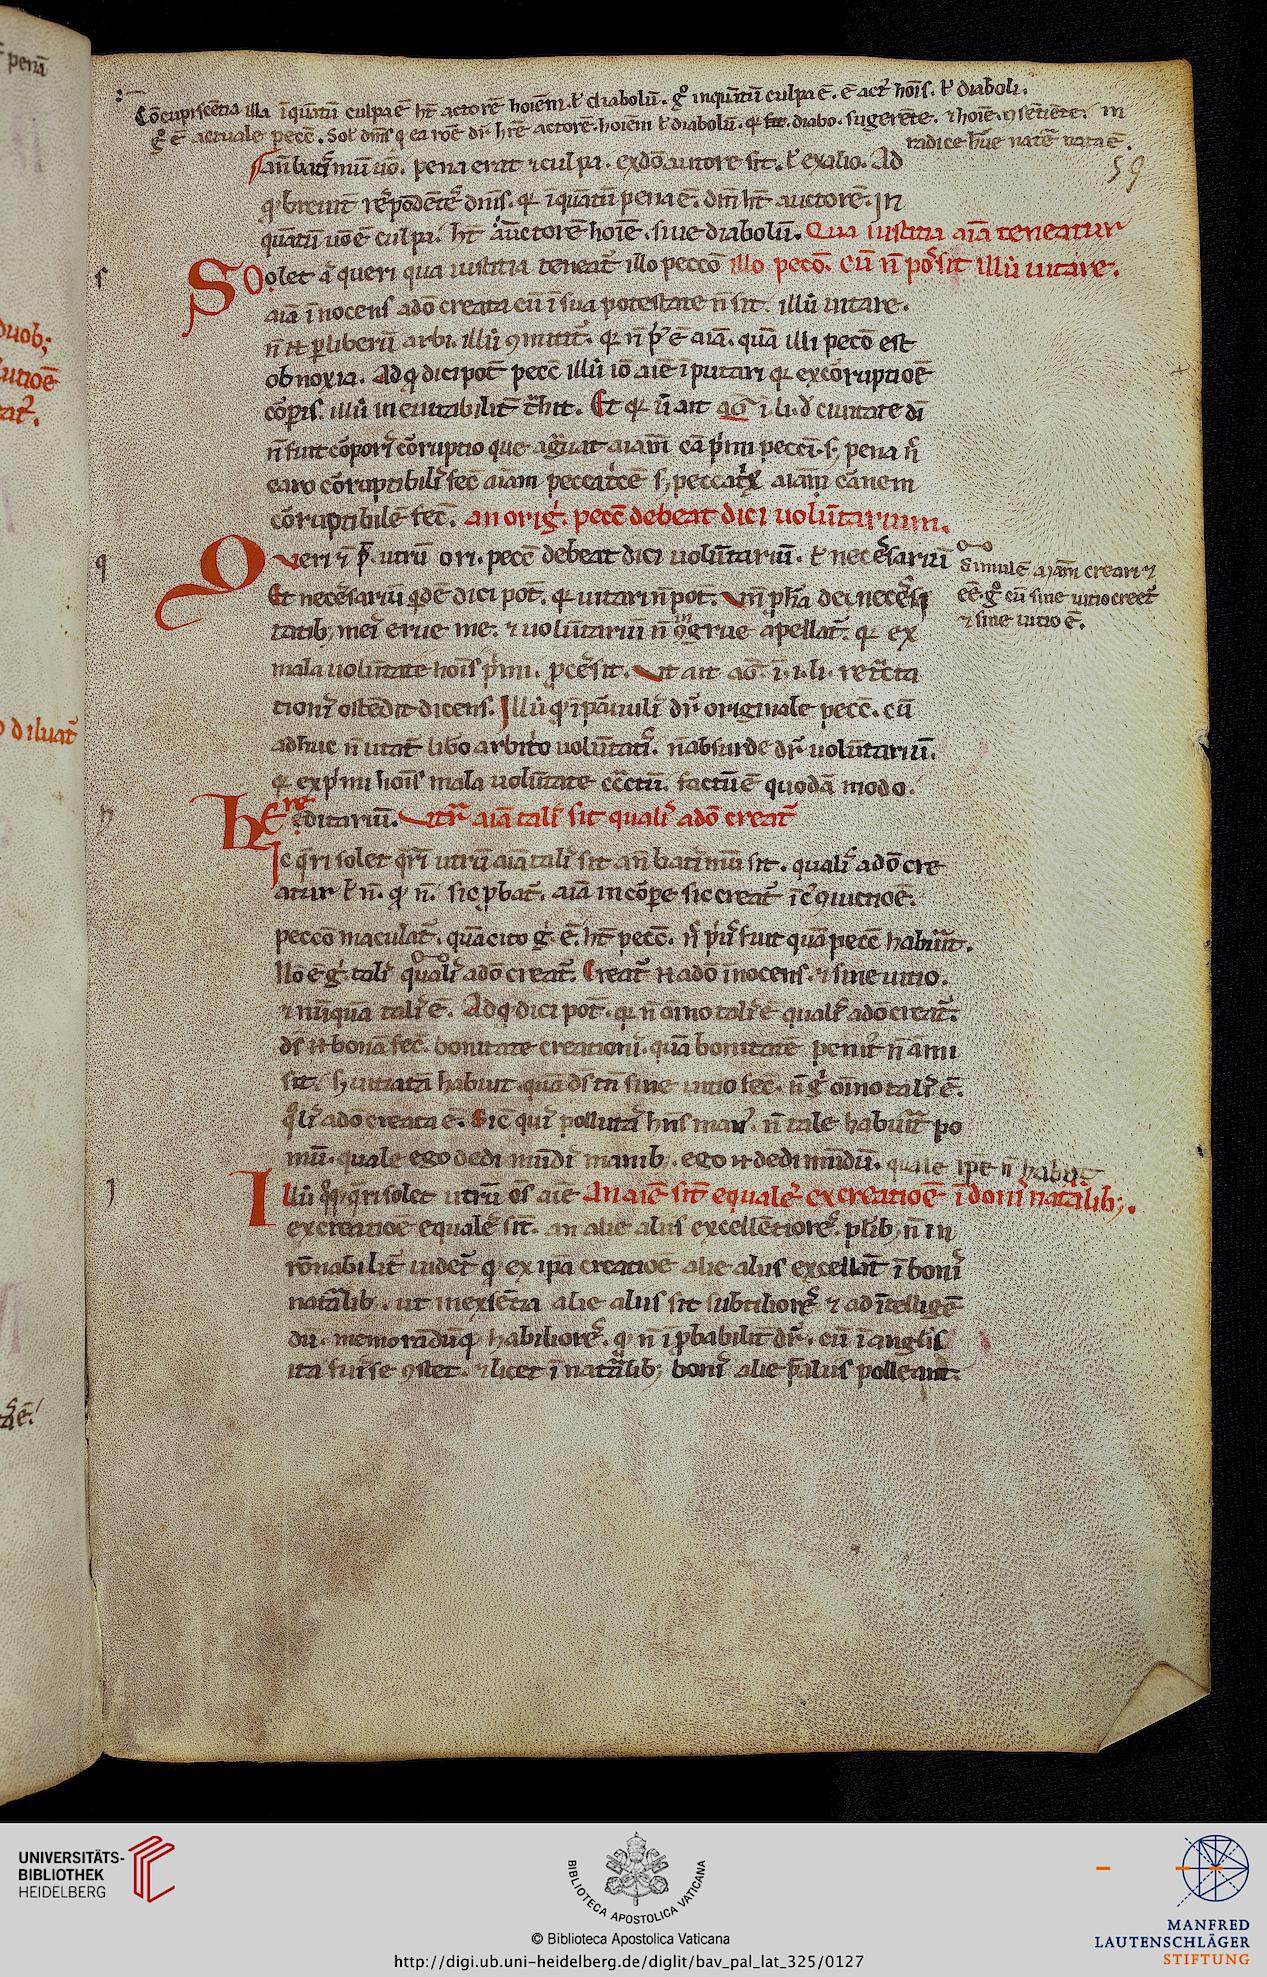 penā
Cōcupiscētia illa īquātū culpa ē hт̄ actorē hoiēm. ł diabolū. gº inquātū culpa ē. ē act̄ hoīs. ł diaboli.
gº ē actuale pecc̄. Sol' dm̄s q ea rōē dr̄ hr̄e actorē hoiem ł diabolū. qr fit. diabo. sugerēte. ⁊ hoiē ꝯsētiēte. in
radice hui' natē nata ē.
59
an̄ batismū uō. pena erat ⁊ culpa. ex dō autore sit. ł ex alio. Ad
q̄ breuit̄ rēpōdētes dm̄s. qr īquātū pena ē. dm̄ hт̄ auctorē. In
quātū uō ē culpa. hт̄ auctorē hoīē. siue diabolū. Qua iustitia aīa teneatur
Solet ā queri qua iustitia teneat̄ illo peccō illo pecō. cū n̄ possit illū uitare.
s
aīa īnocens adō creata cū ī sua potestate n̄ sit. illū uitare.
n̄ .n. ꝑ liberū arbi. illū ꝯmitit̄. qr n̄ p' ē aīa. quā illi pecō est
obnoxia. Ad q̄ dici pot̄ pecc̄ illū iō aīe īputari qr ex corruptiōē
corꝑis. illū ineuitabilit̄ t̄hit. Et qr ū ait ag̅ ī li. d' ciuitate di
n̄ fuit corporis corruptio que ag̅uat aiam̄ cā p̄mi peccī. s; pena n̄
caro corruptibilis fec̄ aiam peccatcē s; peccat̄x aiam̄ carnem
corruptibilē fec̄. an orig̅. pecc̄ debeat dici uolūtarium.
Queri ⁊ p̄. utrū ori. pecc̄ debeat dici uolūtariū. ł necessariū
q
Et necessariū q̄dē dici pot̄. qr uitari n̄ pot̄. Vn̄ ꝓpha de necessi
tatib; meis erue me. ⁊ uolūtariū n̄ īꝯgrue apellat̄. qr ex
mala uolūtate hoīs p̄mi. ꝓcessit. Vt ait ag̅. ī .i. li. retᵃcta
tionis ostēdit dicens. Illū qr ī paruulis dr̄ originale pecc̄. cū
adhuc n̄ utat̄ libo arbitro uolūtatis. n̄ absurde dr̄ uolūtariū.
qr ex p̄mi hoīs mala uolūtate cᵃctū. factū ē quodā modo.
hereditariū. Vtrū aīa talis sit qualis adō creat̄
h
Hic q̄ri solet utrū aīa talis sit an̄ batismū sit. qualis adō cre
atur ł n̄. qr n̄. sic ꝓbat̄. aīa in corꝑe sic creat̄ ī cui' ꝯiūctiōē.
peccō maculat̄. quācito g̊. ē. hт̄ pecc̄. n̄ p̄us fuit quā pecc̄ habuit.
Nō ē g̊ talis qualis adō creat̄. Creat̄ .n. adō īnocens. ⁊ sine uitio.
⁊ nūquā talis ē. Ad q̄ dici pot̄. qr n̄ oīno talis ē qualis adō creat̄.
ds̄ .n. bonā fec̄. bonitate creationis. quā bonitatē penit' n̄ ami
sit. s; uitiatā habuit. quā ds̄ tn̄ sine uitio fec̄. n̄ g̊ oīno talis ē.
q̄lis adō creata ē. Sic qui pollutas hn̄s manus. n̄ tale habuit po
mū. quale ego dedi mūdis manib;. ego .n. dedi mūdū. quale ipe n̄ habuit
Simul ē aiam creari ⁊
eē. gº cū sine uitio creet̄
⁊ sine uitio ē.
Illū q̄ri solet utrū oēs aīe An aīe sīt equales ex creatiōē ī donis natᵃlib;.
ex creatiōē equales sīt. an alie aliis excellētiores. plib; n̄ in
rōnabilit̄ uidet̄ qr ex ipa creatiōē alie aliis excellāt ī bonis
natᵃlib;. ut in exsētia alie aliis sit subtiliores ⁊ ad ītelligē
dū. memorādūq; habiliores. qr n̄ īꝓbabilit̄ dr̄. cū ī anglīs
ita fuisse ꝯstet. ⁊ licet ī natᵃlib; bonis alie p̄ aliis polleant.
UNIVERSITÄTS-
BIBLIOTHEK
HEIDELBERG
BIBLIOTECA APOSTOLICA VATICANA
© Biblioteca Apostolica Vaticana
http://digi.ub.uni-heidelberg.de/diglit/bav_pal_lat_325/0127
MANFRED
LAUTENSCHLÄGER
STIFTUNG